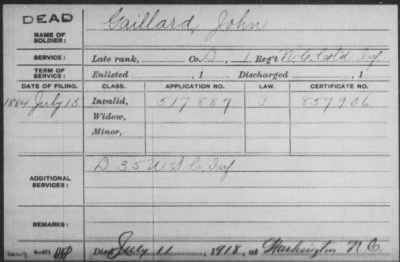 DEAD
NAME OF SOLDIER:
Gaillard, John
SERVICE:
Late rank, Co. D, 1 Reg't N.C. Cold Inf
TERM OF SERVICE:
Enlisted , 1 Discharged , 1
DATE OF FILING. CLASS. APPLICATION NO. LAW. CERTIFICATE NO.
July 15 Invalid, 517887 857906
Widow,
Minor,
ADDITIONAL SERVICES:
D 35 U.S.C. Inf
REMARKS:
Died July 11, 1918, at Washington N.C.